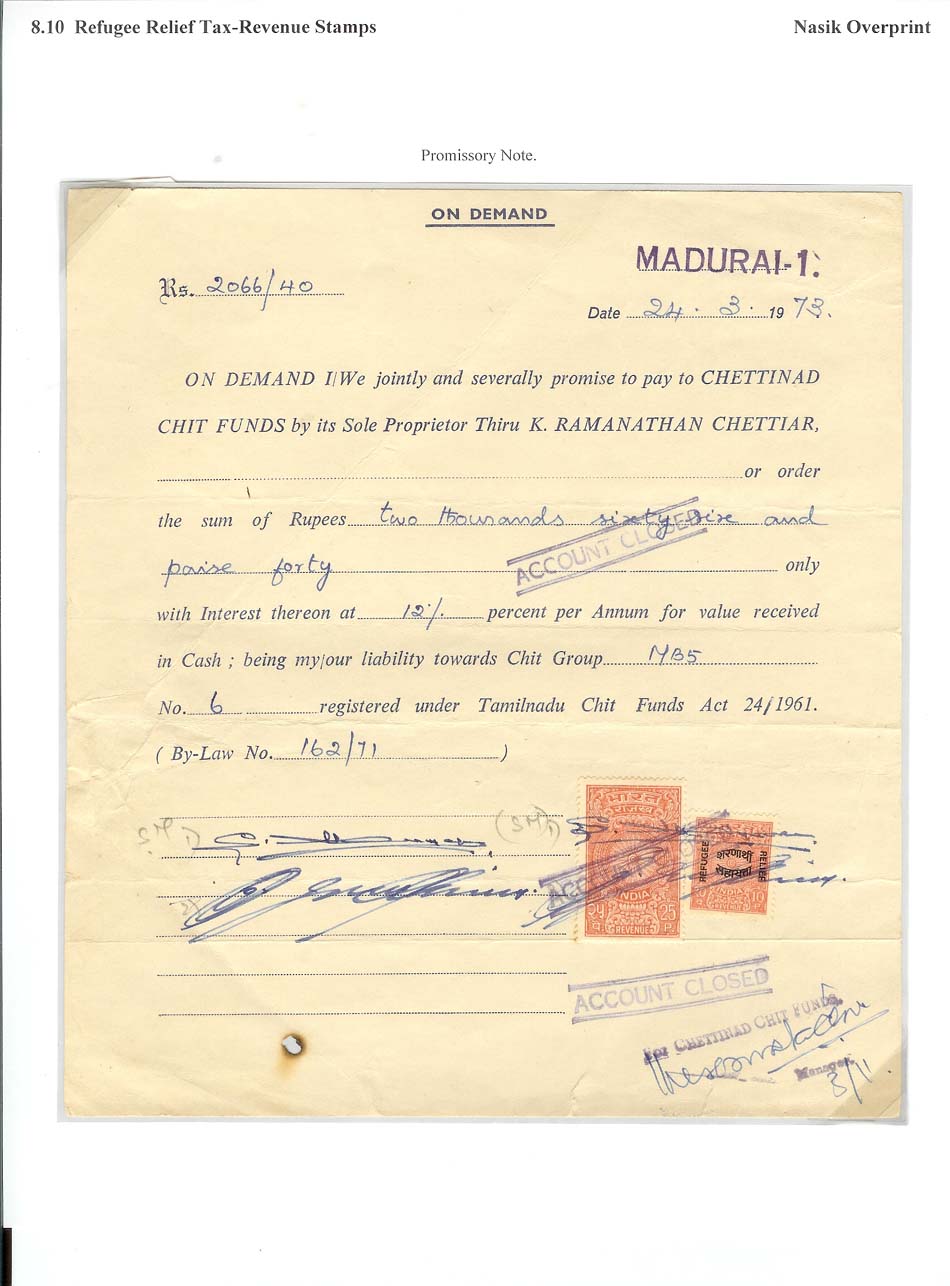 8.10 Refugee Relief Tax-Revenue Stamps
Nasik Overprint
Promissory Note.
ON DEMAND
MADURAI-1.
Rs. 2066/40
Date 24. 3. 1973.
ON DEMAND I/We jointly and severally promise to pay to CHETTINAD
CHIT FUNDS by its Sole Proprietor Thiru K. RAMANATHAN CHETTIAR,
or order
the sum of Rupees two thousands sixty six and
paise forty only
ACCOUNT CLOSED
with Interest thereon at 12% percent per Annum for value received
in Cash ; being my/our liability towards Chit Group MB5
No. 6 registered under Tamilnadu Chit Funds Act 24/1961.
( By-Law No. 162/71 )
भारत
राजस्व
INDIA
25
P.
REVENUE
REFUGEE
शरणार्थी
सहायता
RELIEF
INDIA
10
P
REVENUE
ACCOUNT CLOSED
For CHETTINAD CHIT FUNDS,
Manager.
3/1